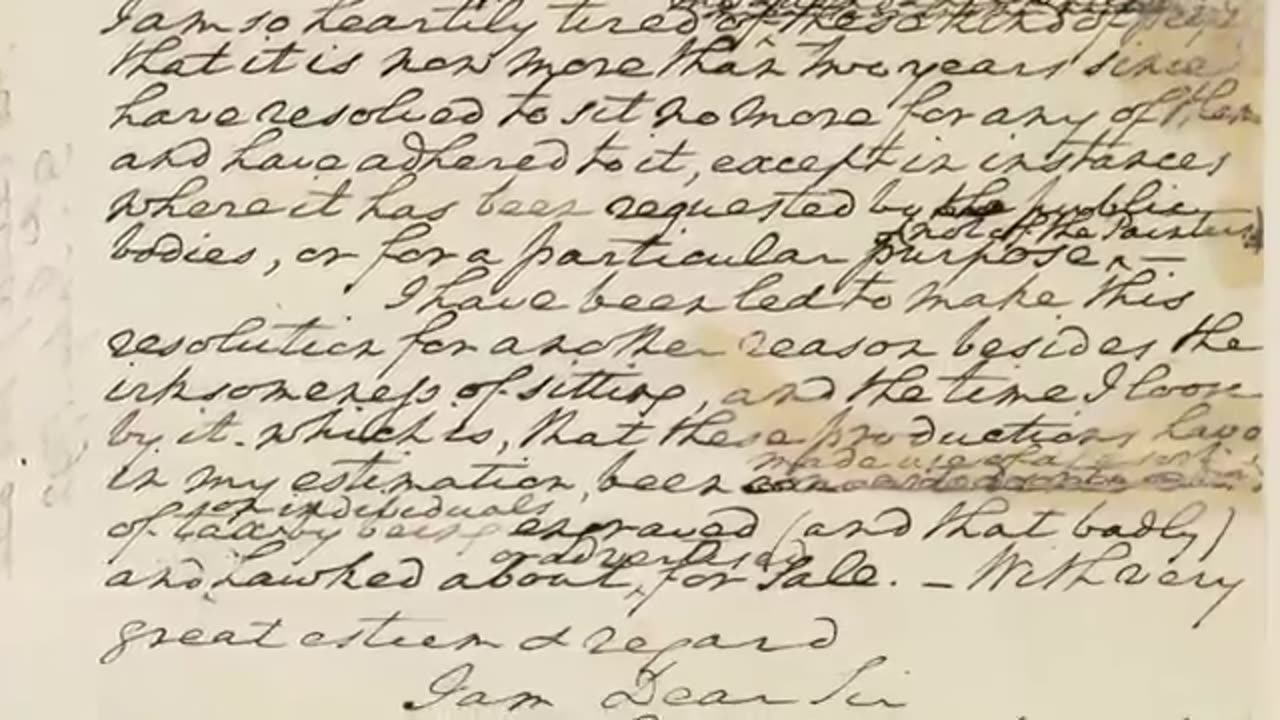 I am so heartily tired of these kind of
that it is now more than two years since
have resolved to sit no more for any of them
and have adhered to it, except in instances
where it has been requested by the public
not of the Painters
bodies, or for a particular purpose, —
I have been led to make this
resolution for another reason besides the
irksomeness of sitting, and the time I loose
by it. which is, that these productions have
made use of as a sort
in my estimation, been
on individuals
of tax by being engraved (and that badly)
or advertised
and hawked about, for Sale. — With very
great esteem & regard
I am Dear Sir